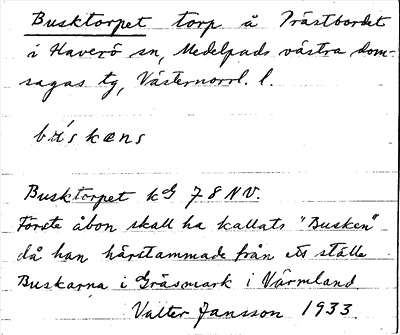 Busktorpet torp å Prästbordet
i Haverö sn, Medelpads västra dom-
sagas tg, Västernorrl. l.
bu̍skens
Busktorpet kG 78 NV.
Förste åbon skall ha kallats "Busken"
då han härstammade från ett ställe
Buskarna i Gräsmark i Värmland
Valter Jansson 1933.